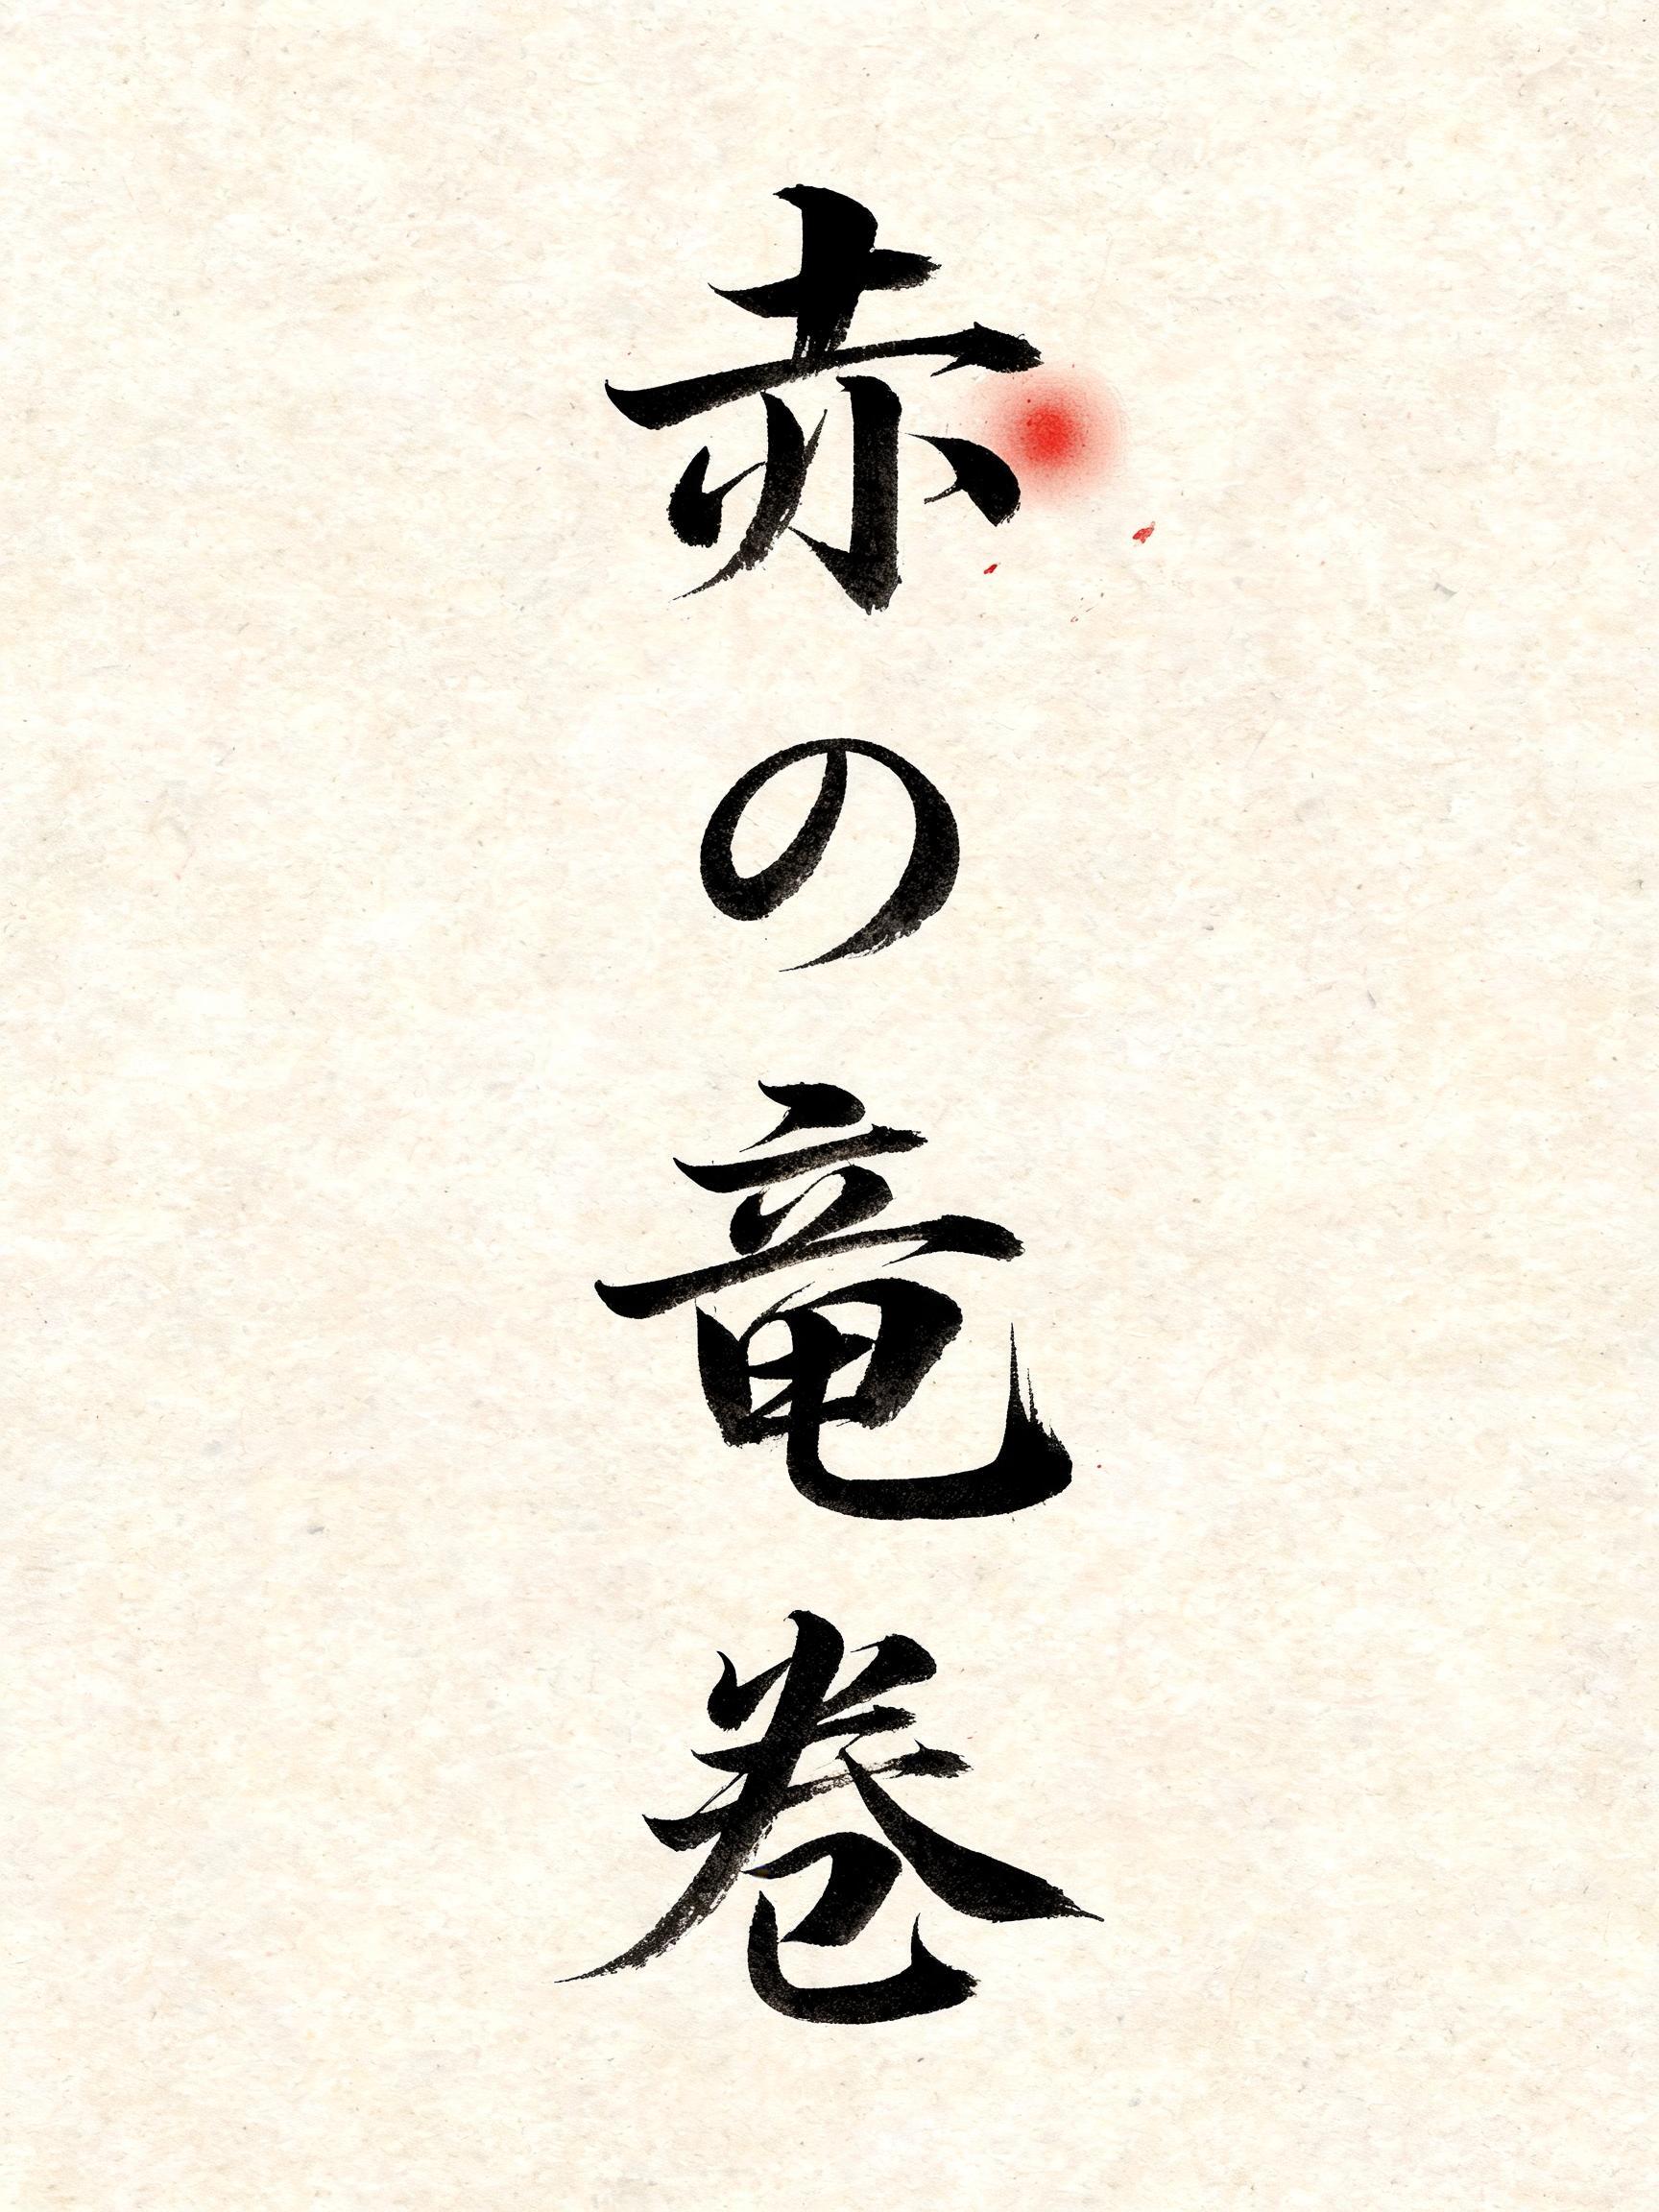 赤の竜巻